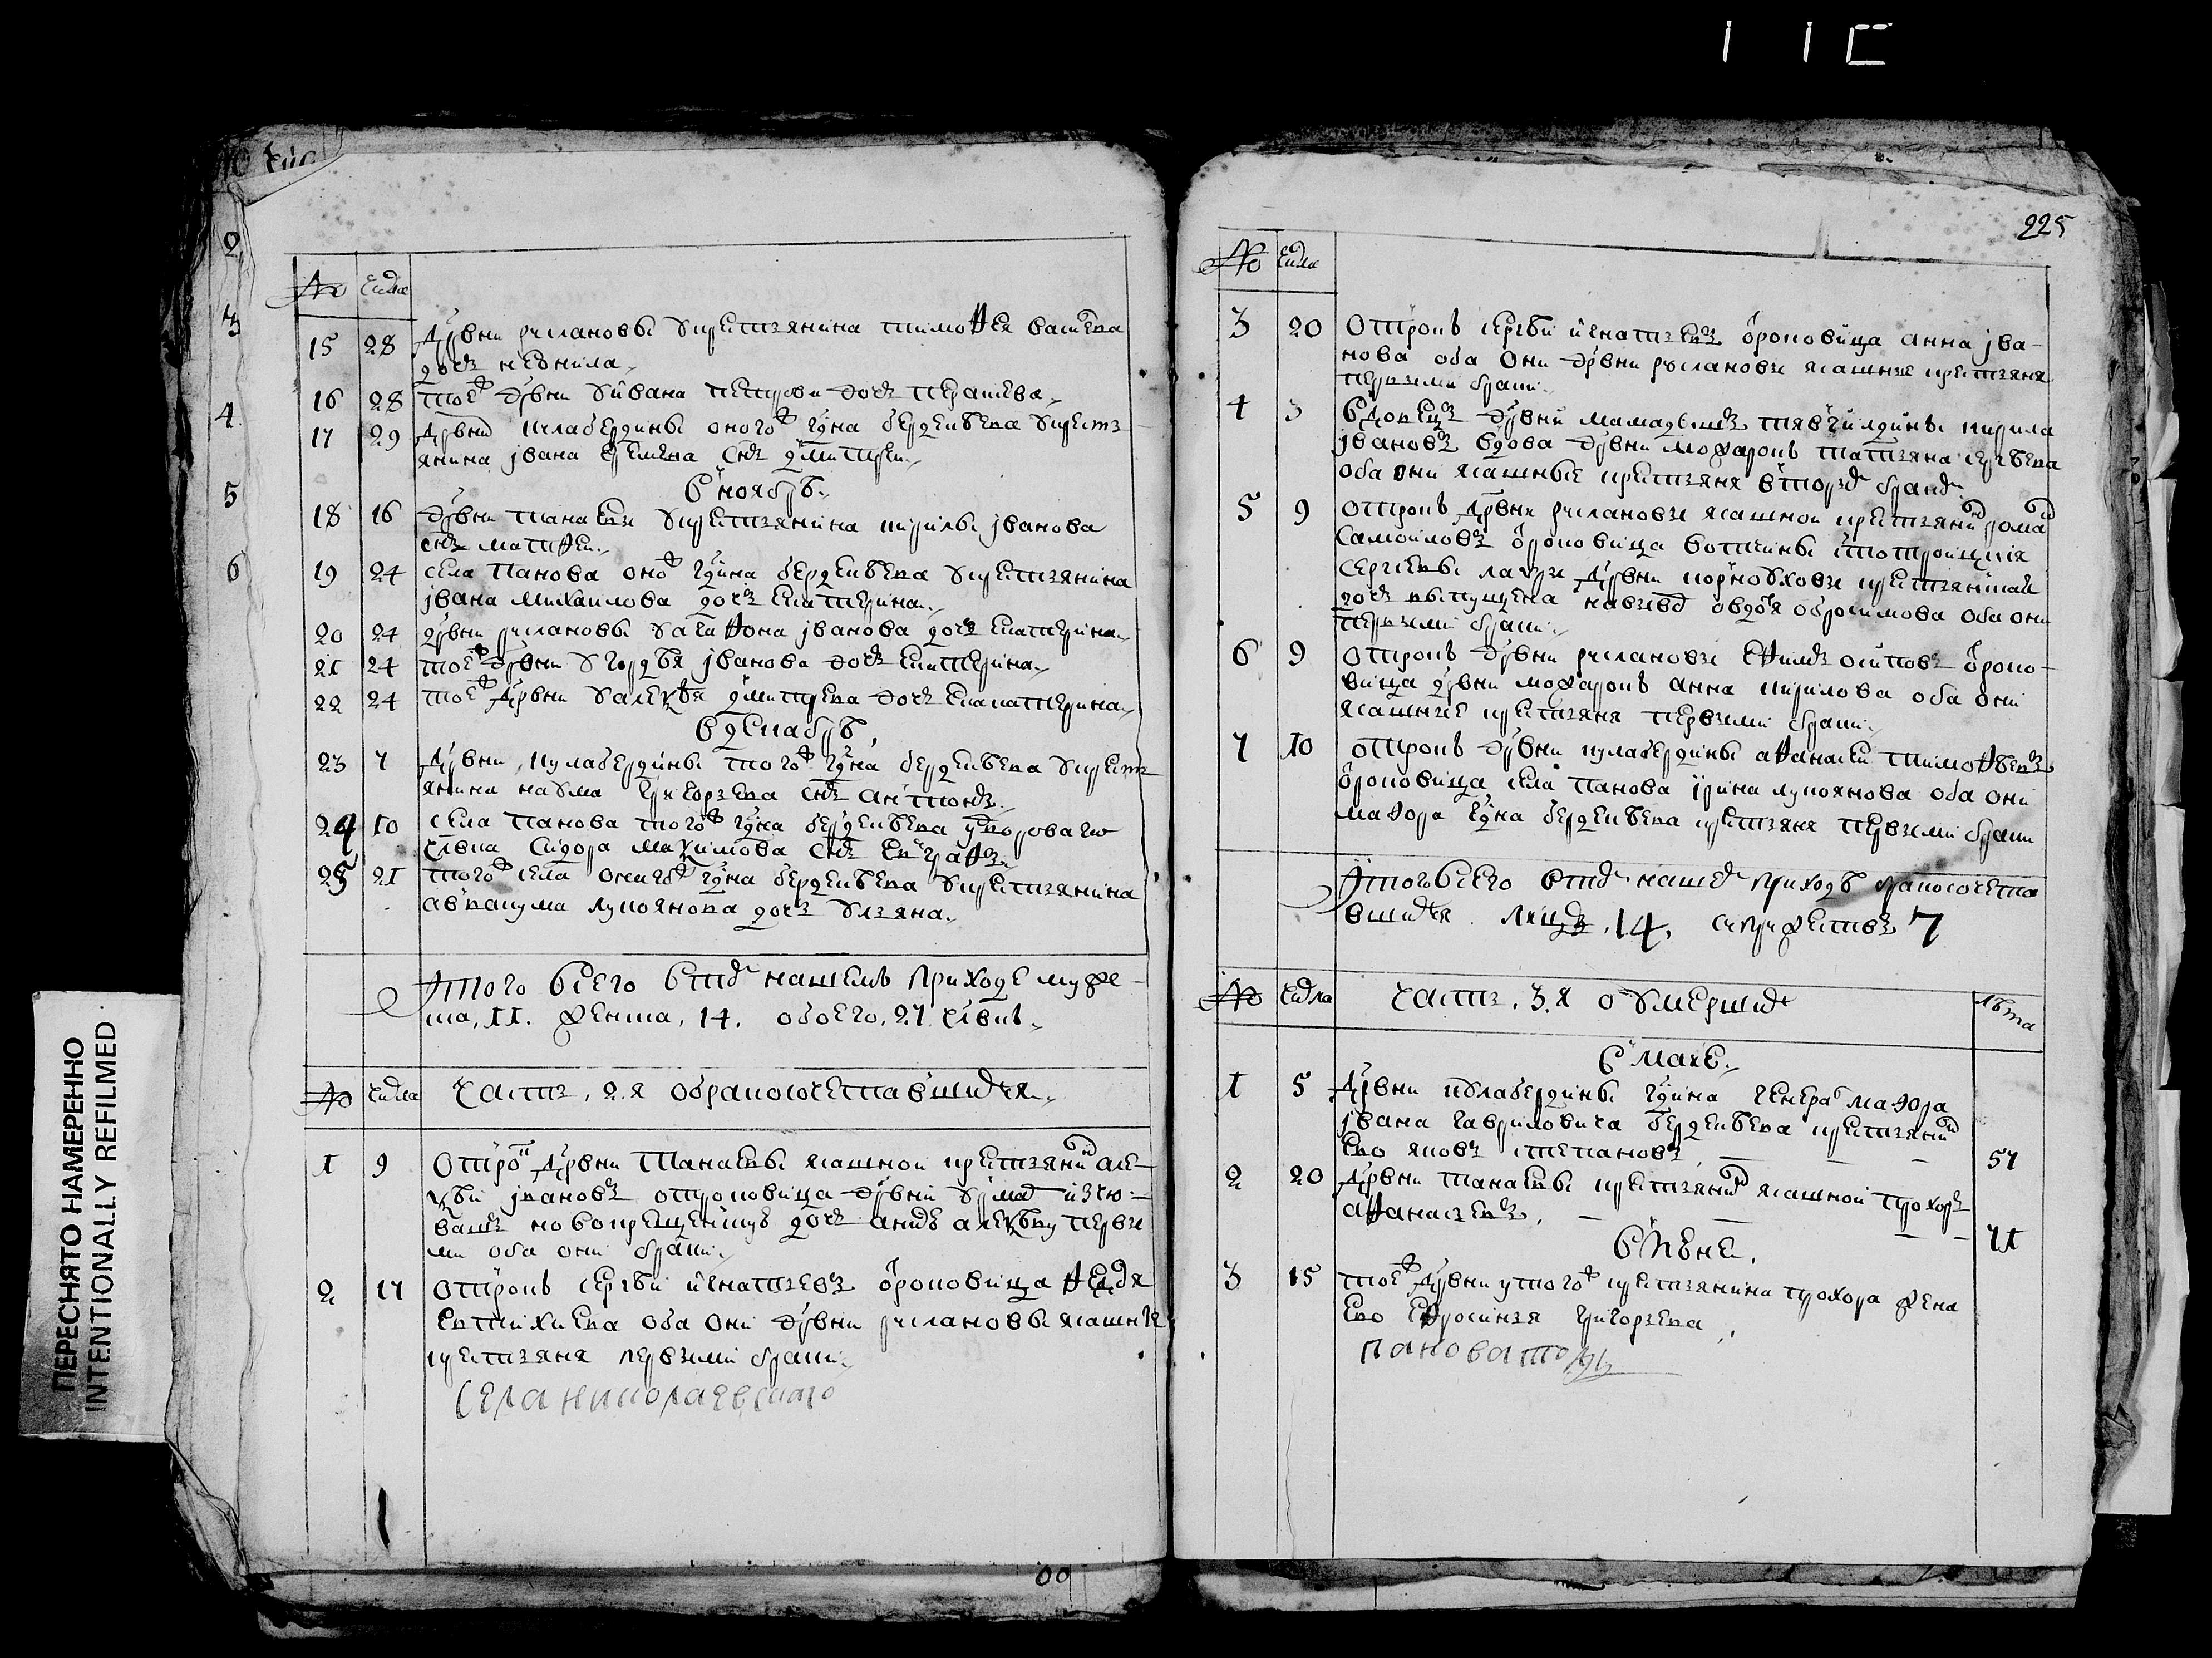 225
№ числа
15 28 Дрвни руслановы у крестьянина тимофея
дочь неонила
16 28 тоеж дрвни у ивана петрова дочь
17 29 Дрвни кулабердины оногож гдна бердеибева у кресть
янина iвана снъ дмитреи
В ноябрѣ
18 16 дрвни танаевы у крестьянина кирилы iванова
снъ матфеи
19 24 села панова оногож гдина бердеибева у крестьянина
iвана михаилова дочь екатерина
20 24 дрвни руслановы у агафона iванова дочь екатерина
21 24 тоеж дрвни у iванова дочь екатерина
22 24 тоеж дрвни у алеѯѣя дмитрева дочь екатерина
В декабрѣ
23 7 Дрвни кулабердины тогож гдна бердеибева у кресть
янина наума григорьева снъ антонъ
24 10 села панова тогож гдна бердеибева дворова го
члвка сидора маѯимова снъ евграфъ
25 21 тогож села оногож гдна бердеибева у крестьянина
авакума лукоянова дочь ульяна
Итого всего в нашемъ приходе муже
ска, 11. женска, 14. обоего, 27 члвкъ
№ числа часть, 2.я о бракосочетавшихся
1 9 Отрокъ Дрвни Танаевы ясашной крестьянинъ але
ѯѣи iвановъ отроковица дрвни
новокрещен дочь алеѯѣву первы
ми оба они браки
2 17 отрокъ сергѣи игнатьевъ отроковица федя
евтихиева оба они дрвни руслановы ясашные
крестьяня первыми браки
села николаевскаго
№ числа
3 20 Отрокъ сергѣи игнатьевъ отроковица анна iва
нова оба они дрвни руслановы ясашные крестьяня
первыми браки
4 3 Вдовецъ дрвни мамадышъ тявгилдины кирила
iвановъ вдова дрвни можарокъ татьяна сергѣева
оба они ясашные крестьяня вторым браком
5 9 отрокъ дрвни руслановы ясашной крестьянинъ романъ
Самоиловъ отроковица вотчины строицкия
сергиевы лавры дрвни крестьянская
дочь выпущена навывод овдотя обросимова оба они
первыми браки
6 9 отрокъ дрвни руслановы ефимъ осиповъ отроко
вица дрвни можарокъ анна кирилова оба они
ясашные крестьяня первыми браки
7 10 отрокъ дрвни кулабердины афанасеи тимофѣевъ
отроковица села панова ирина лукоянова оба они
маiора гдна бердеибева крестьяня первыми браки
Итого всего в нашем приходѣ бракосочета
вшихся лицъ, 14, супружествъ 7
№ числа часть, 3.я о умерших лѣта
В маие
1 5 Дрвни кулабердины гдина генерал маiора
iвана гавриловича бердеибева крестьянинъ
ево яковъ степановъ 57
2 20 Дрвни танаевы крестьянинъ ясашной прохоръ
афанасьевъ 71
В июне
3 15 тоеж Дрвни у тогож крестьянина прохора жена
ево ефросинья григорьева
панова тожъ
ПЕРЕСНЯТО НАМЕРЕННО
INTENTIONALLY REFILMED